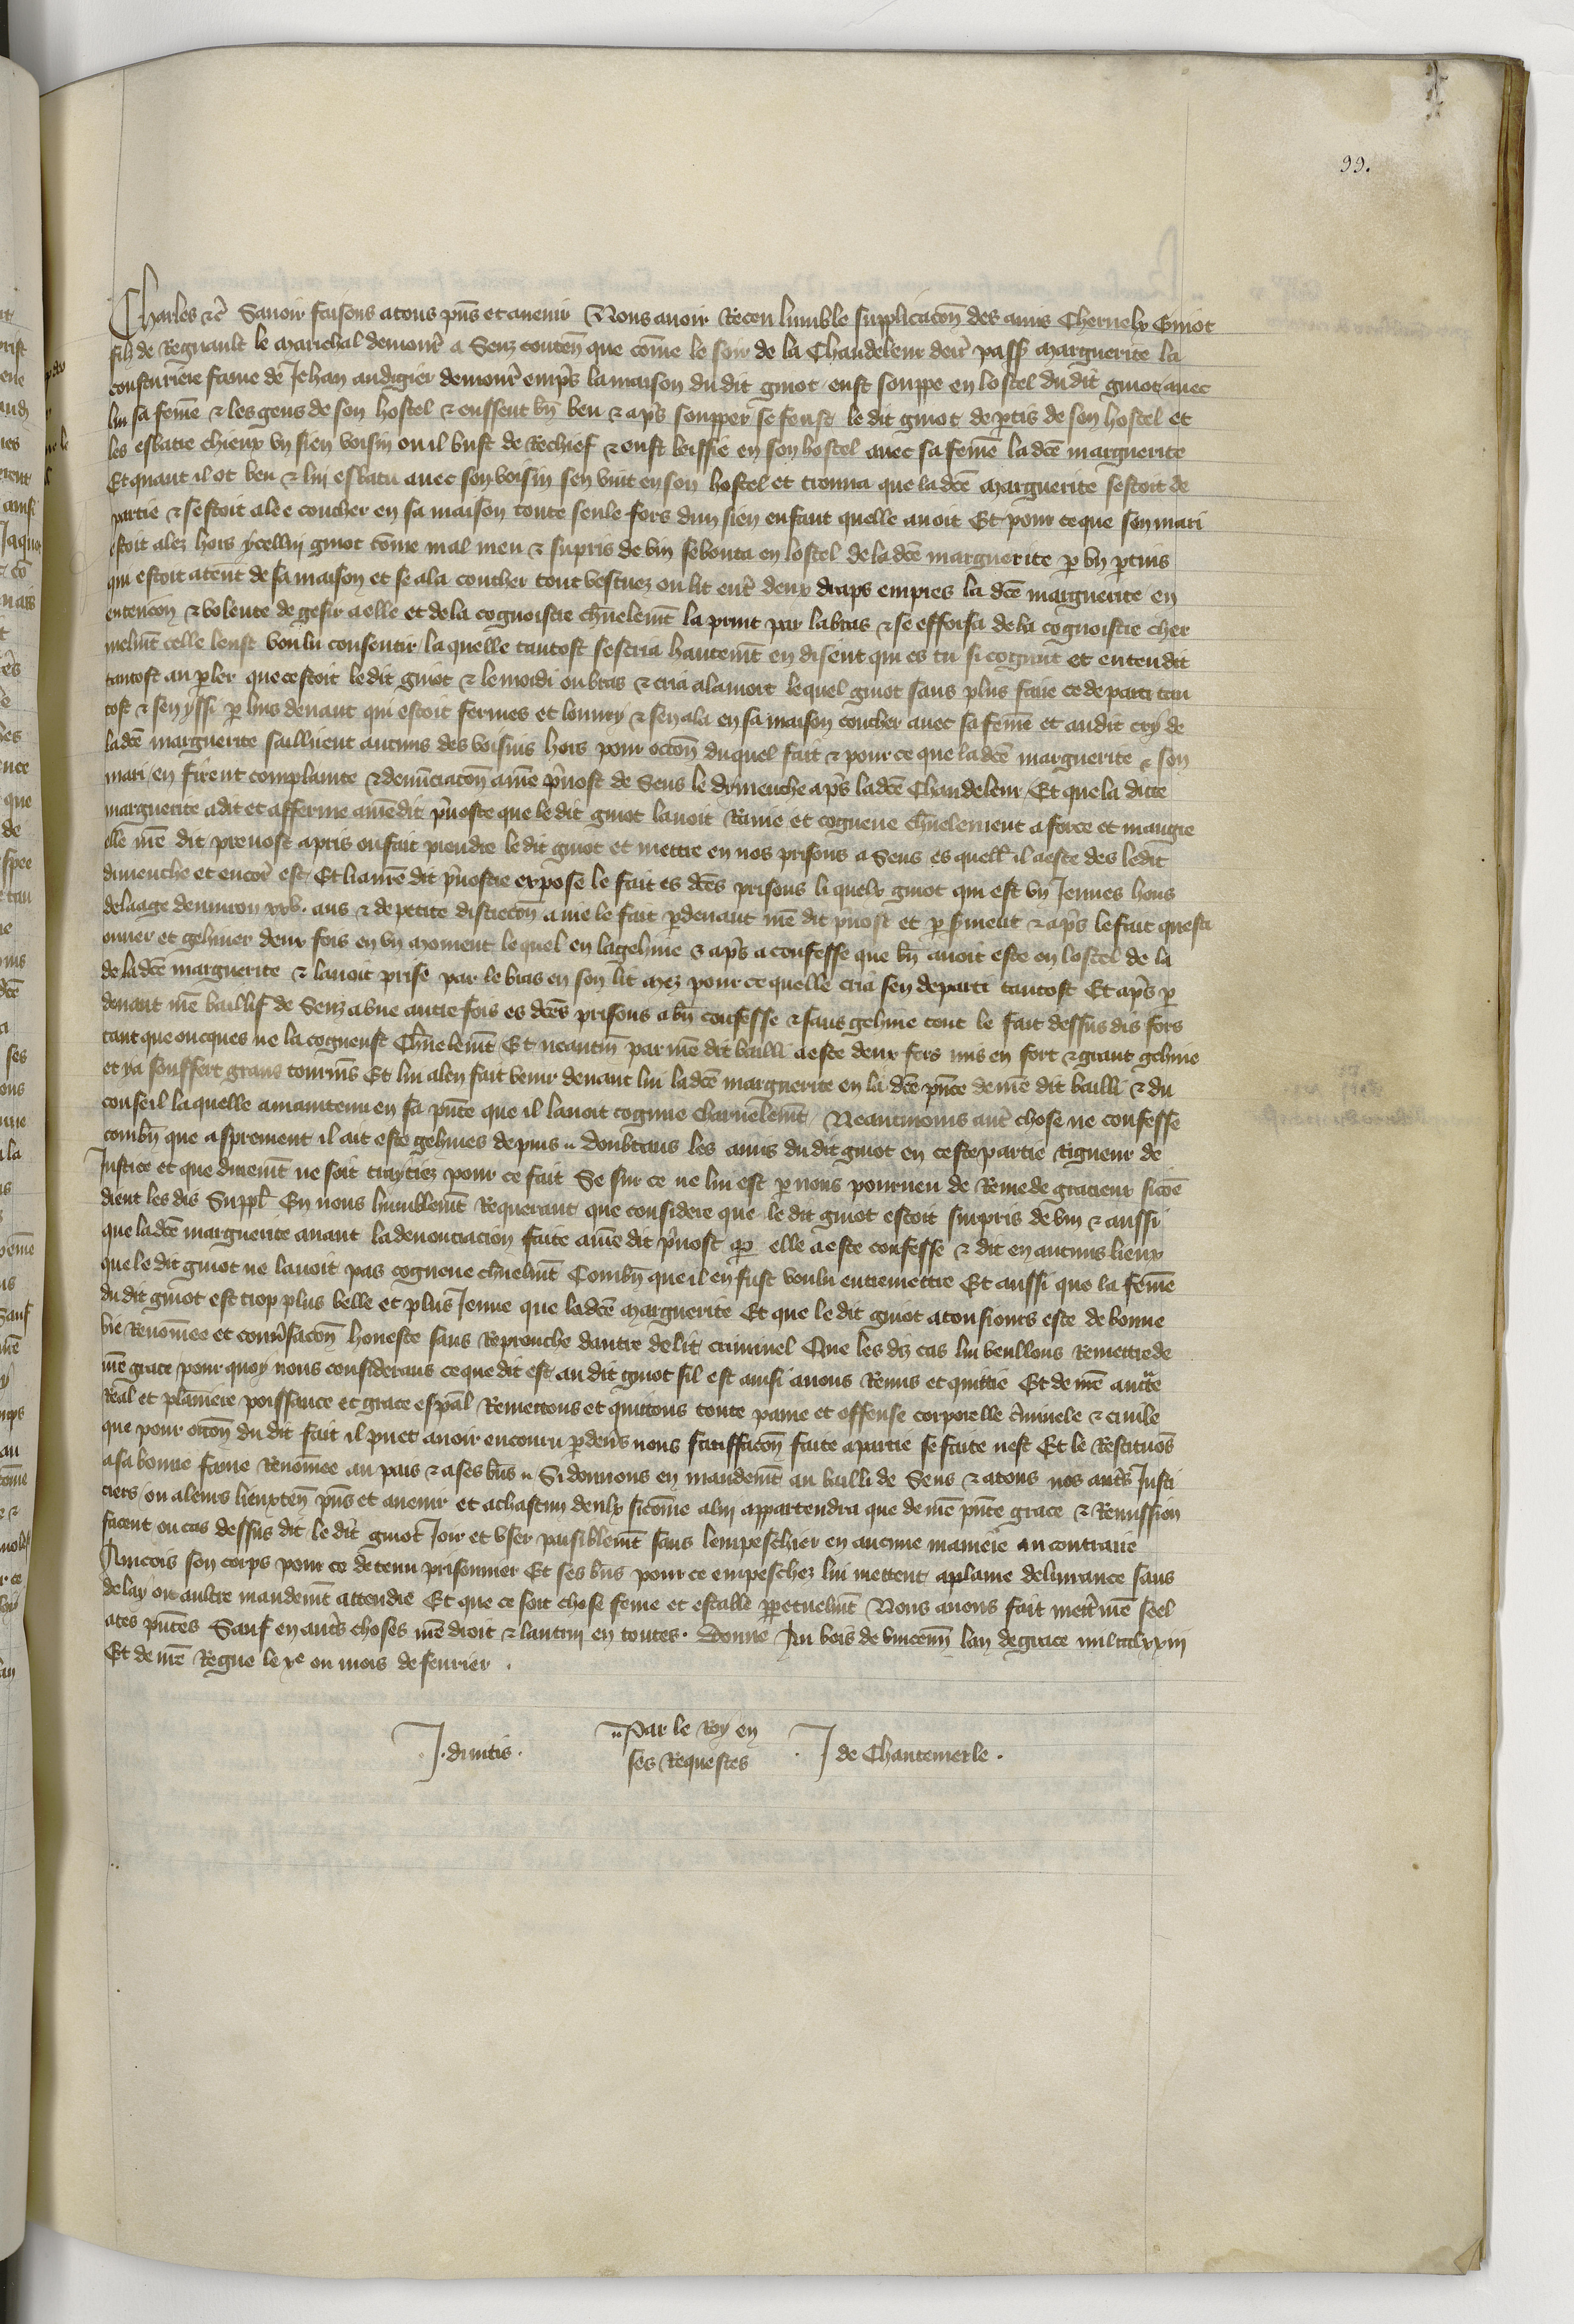 99.
Charles etc̃ Sauoir faisons a tous pñs et auenir Nous auoir Receu lumble supplicacõn des amis Chernelx Guiot
filz de Regnault le Marichal demour̃ a Senz conteñ que cõme le soir de la Chandeleur derr̃ pass̃ Marguerite la
cousturiere fame de Jehan audigier demour̃ emp̃s la maison du dit guiot eust souppe en lostel du dit guiot auec
lui sa fem̃e et les gens de son hostel et eussent bñ beu et ap̃s soupper se feust le dit guiot dep̃tis de son hostel et
les esbatre chieux vn sien voisin ou il bust de Rechief et eust leissie en son hostel auec sa fem̃e la dc̃e marguerite
Et quant il ot beu et lui esbatu auec son voisin sen vint en son hostel et trouua que la dc̃e Marguerite sestoit de
partie et sestoit alee coucher en sa maison toute seule fors dun sien enfant quelle auoit Et pour ce que son mari
estoit alez hors ycellui guiot cõme mal meu et supris de vin se bouta en lostel de la dc̃e marguerite p vn p̃tuis
qui estoit atent de sa maison et se ala coucher tout vestuez ou lit ent̃ deux draps empres la dc̃e marguerite en
entencõn et volente de gesir a elle et de la cognoistre ch̃nelem̃t la print par la bras et se efforsa de la cognoistre cher
nelm̃t celle leust voulu consentir la quelle tantost sescria hautem̃t en disent qui es tu si cogunt et entendit
tantost au p̃ler que cestoit le dit guiot et le mordi ou bras et cria a la mort lequel guiot sans plus faire ce departi tan
tost et sen yssi p luis deuant qui estoit fermes et louury et sen ala en sa maison coucher auec sa fem̃e et au dit cry de
la dc̃e marguerite saillirent aucuns des voisins hors pour occõn duquel fait et pour ce que la dc̃e marguerite et son
mari en firent complainte et denũciacõn a nr̃e p̃uost de Sens le dimenche ap̃s la dc̃e Chandeleur Et que la dicte
marguerite a dit et afferme a nr̃e dit p̃uoste que le dit guiot lauoit Rauie et cogneue ch̃nelement a force et maugre
elle nr̃e dit preuost a pris ou fait prendre le dit guiot et mettre en nos prisons a Sens es quell̃ il a este des le dit
dimenche et encor̃ est Et li a nr̃e dit p̃uostre expose le fait es dc̃es prisons li quelx guiot qui est vn Jeunes hons
de laage denuiron xxv. ans et de petite discrecõn a nie le fait p̃ deuant nr̃e dit p̃uost et p serment et ap̃s le fait questi
onner et gehiner deux fois en vn moment lequel en la gehine et ap̃s a confesse que bñ auoit este en lostel de la
de la dc̃e marguerite et lauoit prise par le bras en son lit mez pour ce quelle cria sen departi tantost Et ap̃s p
deuant nr̃e baillif de Senz a vne autre fois es dc̃es prisons a bñ confesse et sans gehine tout le fait dessus dis fors
tant que oncques ne la cogneust Ch̃nelem̃t Et neantm̃ par nr̃e dit bailli a este deux fois mis en fort et grant gehine
et y a souffert grans tourm̃s Et lui a len fait venir deuant lui la dc̃e marguerite en la dc̃e pñce de nr̃e dit bailli et du
conseil laquelle a maintenu en sa pñce que il lauoit cognue charnelem̃t Neantmoins aut̃ chose ne confesse
combñ que asprement il ait este gehines depuis Doubtans les amis du dit guiot en ceste partie Rigueur de
Justice et que durem̃t ne soit traytiez pour ce fait Se sur ce ne lui est p nous pourueu de Remede gracieux sicõe
dient les dis Suppl̃ En nous humblem̃t Requerant que considere que le dit guiot estoit surpris de vin et aussi
que la dc̃e marguerite auant la denonciacion faite a nr̃e dit p̃uost p elle a este confesse et dit en aucuns lieux
que le dit guiot ne lauoit pas cogneue ch̃nelm̃t Combñ que il en fust voulu entremettre Et aussi que la fem̃e
du dit guiot est trop plus belle et plus Jeune que la dc̃e Marguerite Et que le dit guiot a tousiours este de bonne
vie Renõmee et conũsacõn honeste sans Reprouche dautre delit criminel Que les diz cas lui veullons Remettre de
nr̃e grace pour quoy nous considerans ce que dit est au dit guiot sil est ainsi auons Remis et quittie Et de nr̃e auctte
Real et plainiere poissance et grace esp̃al Remettons et quittons toute paine et offense corporelle c̃minele et ciuile
que pour occõn du dit fait il puet auoir encouru p̃ deũs nous satiffacõn faite a partie se faite nest Et le Restituõs
a sa bonne fame Renõmee au pais et a ses bñs Si donnons en mandem̃t au bailli de Sens et a tous nos aut̃s Justi
ciers ou a leurs lieuxteñ pñs et auenir et a chascun deulx sicõme a lui appartendra que de nr̃e pñte grace et Remission
facent ou cas dessus dit le dit guiot Joir et vser paisiblem̃t sans lempeschier en aucune maniere au contraire
Aincois son corps pour ce detenu prisonnier Et ses bñs pour ce empeschez lui mettent a plaine deliurance sans
delay ou aultre mandem̃t attendre Et que ce soit chose ferme et estable p̃petuelm̃t Nous auons fait mett̃ nr̃e seel
a ces pñtes Sauf en aut̃s choses nr̃e droit et lautrui en toutes. Donne Au bois de vinceñn lan de grace mil ccclxxiii
Et de nr̃e Regne le xe ou mois de feurier.
J. diuitis. Par le Roy en J de Chantemerle.
ses Requestes